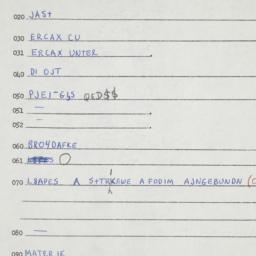 020 JAST
030 ERCAX CU
031 ERCAX UNTER
040 DI OJT
050
051 —
052 —
060 BRO4DAFKE
061
070 L8APES A A FODIM AJNGEBUNDN
080 —
090 MATER IE